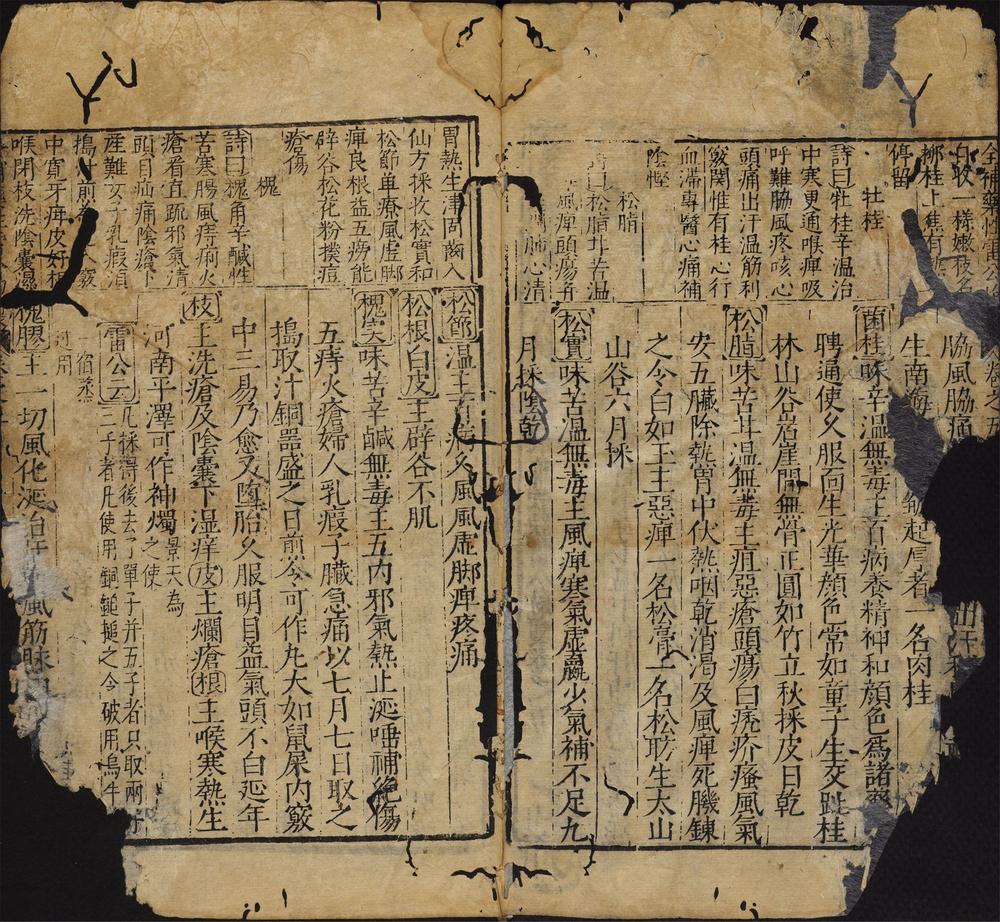 全補藥性雷公
白收一様嫩枝名
桞桂上焦有
停留
牡桂
詩曰牡桂辛温治
中寒更通喉痺吸
呼難脇風疼咳心
頭痛出汗温筋利
竅関惟有桂心行
血滞専醫心痛補
陰慳
松脂
詩曰松脂甘苦温
風痺頭瘍
肺心清
脇風脇痛
出汗
生南海
者一名肉桂
菌桂味辛温無毒主百病養精神和顔色爲諸藥
聘通使久服面生光華顔色常如童子生交趾桂
林山谷岩崖間無骨正圓如竹立秋採皮日乾
松脂味苦甘温無毒主疽惡瘡頭瘍白疣疥瘙風氣
安五臟除熱胃中伏熱咽乾消渇及風痺死肌鍊
之令白如玉主惡痺一名松膏一名松肪生太山
山谷六月採
松實味苦温無毒主風痺寒氣虚羸少氣補不足九
月採陰乾
胃熱生津固齒入
仙方採收松實和
松節单療風虚脚
痺良根益五癆能
辟谷松花粉撲痘
瘡傷
槐
詩曰槐角辛鹹性
苦寒腸風痔痢火
瘡看宜疏邪氣清
頭目疝痛陰瘡下
産難女子乳瘕湏
搗汁煎
中寛牙疼皮好相
喉閉枝洗陰囊濕
松節温主百病久風風虚脚痺疼痛
松根白皮主辟谷不肌
槐实味苦辛鹹無毒主五内邪氣熱止涎唾補絶傷
五痔火瘡婦人乳瘕子臟急痛以七月七日取之
搗取汁銅器盛之日煎令可作丸大如鼠屎内竅
中三易乃愈又墮胎久服明目益氣頭不白延年
枝主洗瘡及陰囊下湿痒皮主爛瘡根主喉寒熱生
河南平澤可作神燭景天為之使
雷公云凡採得後去了單子并五子者只取兩
三子者凡使用銅鎚搥之令破用烏牛
一宿蒸
过用
槐膠主一切風化涎治
風筋脉